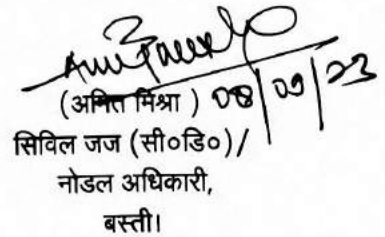 (अमित मिश्रा) 08/09/23
सिविल जज (सी०डि०)/
नोडल अधिकारी,
बस्ती।